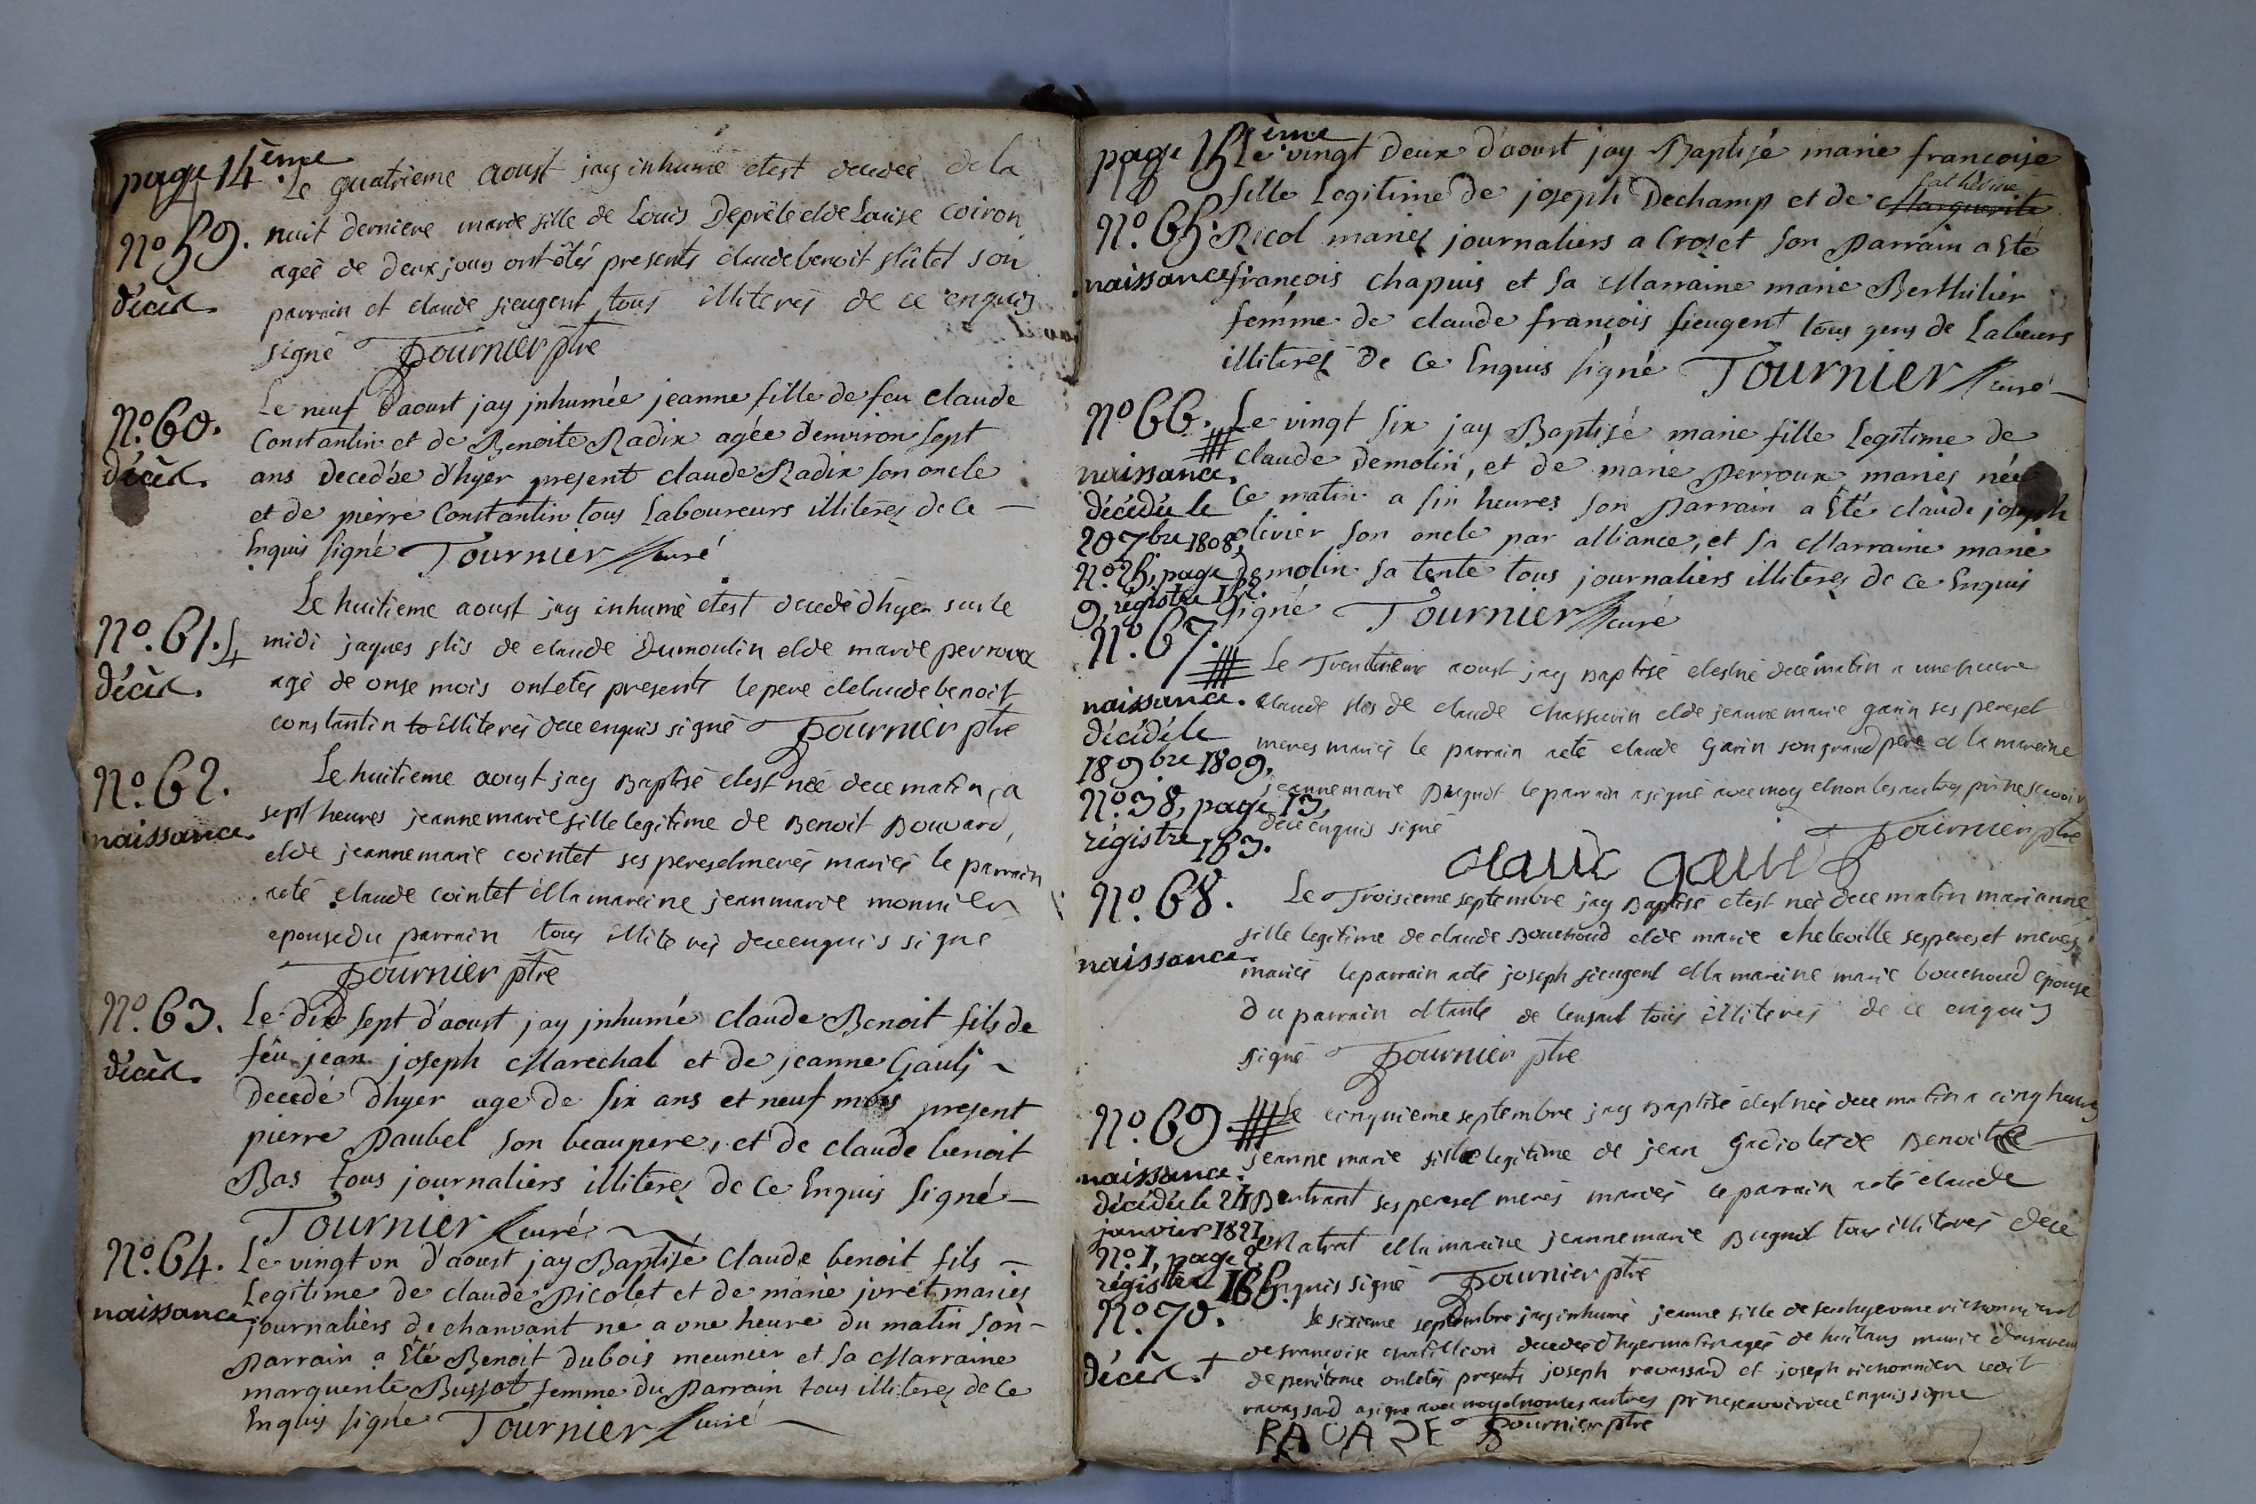 page 14ème
Le quatrieme aoust jay inhumé etest decedeé de la
nuit derniere marie fille de Louis Deprêle elde Louise coiron
N.o 59.
ageé de deux jours ont étés presents claude benoit flûtet son
décès.
parrain et claude fieugent tous illiterés de ce enquis
signé Tournier ptre
Le neuf d'aoust jay jnhumée jeanne fille de feu claude
N.o 60.
Constantin et de Benoite Radix agée denviron sept
décès.
ans decedée d'hyer present claude Radix son oncle
et de pierre Constantin tous Laboureurs illiteres de ce —
Enquis signé Tournier curé
Le huitieme aoust jay inhumé etest decedé dhyer sur le
N.o 61.
midi jaques fils de claude Dumoulin elde marie perroux
décès.
agé de onse mois ontetés presents le pere el claude benoit
constantin to illiterés dece enquis signé Tournier ptre
N.o 62.
Le huitieme aoust jay Baptisé elest neé dece matin, a
naissance.
sept heures jeanne marie fille legitime de Benoit Bouvard,
elde jeanne marie cointet ses peres elmerés mariés le parrain
aeté claude cointet el la mareine jeanmarie monnier
epouse du parrain tous illiterés dece enquis signe
Tournier ptre
N.o 63.
Le dix sept d'aoust jay jnhumé claude Benoit fils de
feu jean joseph Marechal et de jeanne Gauli
décès.
Decedé d'hyer age de six ans et neuf mois present
pierre Paubel son beaupere, et de claude benoit
Bas tous journaliers illiteres de ce Enquis signé —
Tournier curé
N.o 64.
Le vingt un d'aoust jay Baptisé Claude benoit fils —
Legitime de claude Picolet et de marie joret mariés
naissance
journaliers de chanvant né a une heure du matin son —
Parrain a Eté Benoit Dubois meunier et sa Marraine
marguerite Bussot femme du Parrain tous illiteres de ce
Enquis signé Tournier curé
page 15ème
Le vingt deux d'aoust jay Baptisé marie francoise
fille Legitime de joseph Dechamp et de Marguerite Cathérine
N.o 65.
Ricol mariés journaliers a Crozet son Parrain a Eté
naissance.
françois chapuis et sa Marraine marie Berthilier
femme de claude françois fieugent tous gens de Labeurs
illiteres de ce Enquis signé Tournier curé —
N.o 66.
Le vingt six jay Baptisé marie fille Legitime de
naissance.
claude Demolin, et de marie Perroux mariés née
décédée le
ce matin a six heures son Parrain a Eté claude joseph
20 7bre 1808,
olivier son oncle par alliance, et sa Marraine marie
N.o 25, page
Demolin sa tente tous journaliers illiteres de ce Enquis
9, régistre 152.
signé Tournier curé
N.o 67.
Le Trentieme aoust jay Baptisé elestné dece matin a une heure
naissance.
claude fils de claude chassurin elde jeanne marie garin ses pereset
décédé le
meres mariés le parrain aeté claude Garin son grand pere el la mareine
18 9bre 1809,
jeanne marie Bugnot le parrain asigné avec moy elnon les autres pr ne scavoir
N.o 38, page 13,
dece enquis signé
régistre 153.
Tournier ptre
claude garin
N.o 68.
Le Troisieme septembre jay Baptisé etest neé dece matin marianne
fille legitime de claude Bouchoud elde marie cheleville sesperes et meres
naissance.
mariés le parrain aeté joseph fieugent el la mareine marie bouchoud epouse
du parrain el tante de lenfant tous illiterés de ce enquis
signé Tournier ptre
N.o 69.
Le cinquieme septembre jay Baptisé elest neé dece matin a cinq heures
naissance.
jeanne marie fille legitime de jean Gadiolet de Benoite
décédée le 24
Bertrant ses peres el merés mariés le parrain aeté claude
janvier 1821
Matrat el la mareine jeanne marie Bugnot tous illiterés dece
N.o 1, page 2,
régistre 166.
enquis signé Tournier ptre
N.o 70.
Le sixieme septembre jay inhumé jeanne fille de feu
de francoise chatillion decedeé dhyer matin ageé de huit ans munie du sacrement
décès.
de penitence ontetés presents joseph ravassard et joseph richonnier ledit
ravassard asigné avec moy elnon les autres pr ne scavoir dece enquis signe
RAVASE Tournier ptre